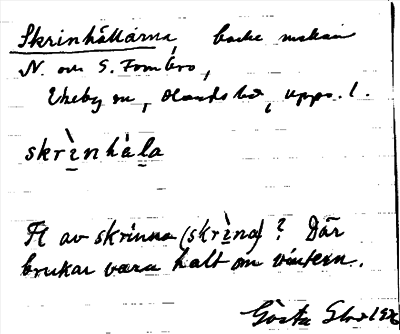 Skrinhällarna, backe mellan
N. och S. Fombro,
Ekeby sn, Olands hd, Upps. l.
skrìnhàla
Fl av skrinna (skrìna)? Där
brukar vara halt om vintern.
Gösta